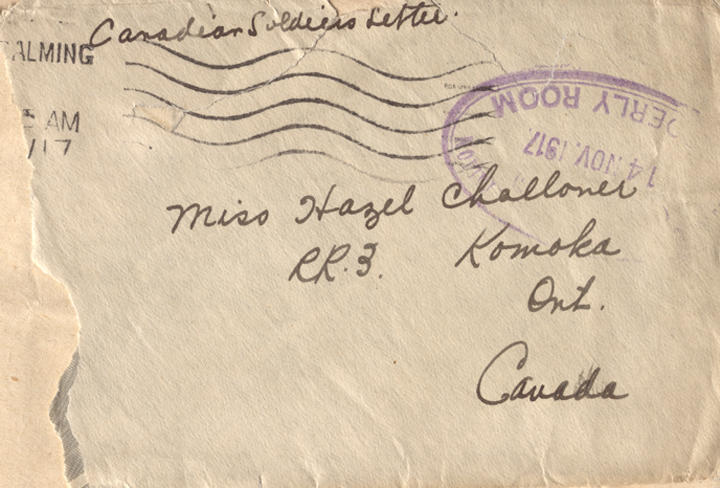 Canadian Soldiers Letter.
ALMING
AM
/17
ORDERLY ROOM
14 NOV. 1917
Miss Hazel Challoner
RR.3. Komoka
Ont.
Canada